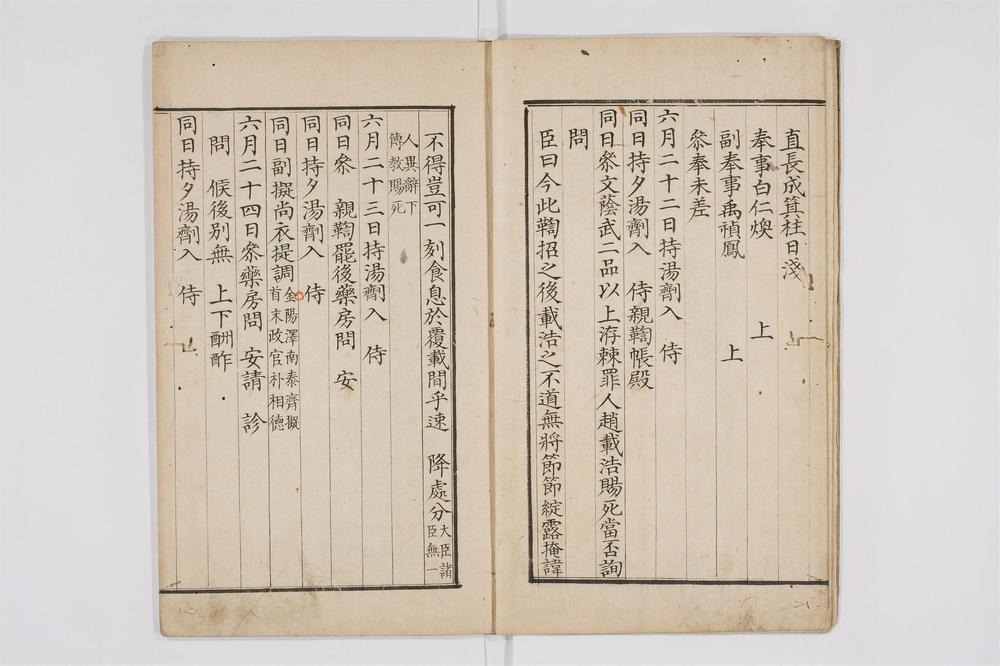 直長成箕柱日淺
奉事白仁煥　　　上
副奉事禹禎鳳　　　上
叅奉未差
六月二十二日持湯劑入　侍
同日持夕湯劑入　侍親鞫帳殿
同日叅文蔭武二品以上洊棘罪人趙載浩賜死當否詢
問
臣曰今此鞫招之後載浩之不道無將節節綻露掩諱
不得豈可一刻食息於覆載間乎速　降處分大臣諸臣無一
人異辭下傳敎賜死
六月二十三日持湯劑入　侍
同日叅　親鞫罷後藥房問　安
同日持夕湯劑入　侍
同日副擬尚衣提調首金陽澤南泰齊擬末政官朴相德
六月二十四日叅藥房問　安請　診
問　候後別無　上下酬酢
同日持夕湯劑入　侍